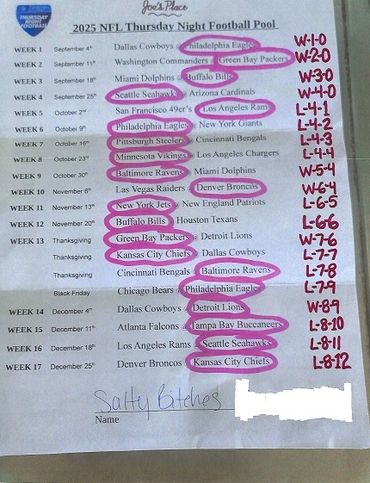 THURSDAY NIGHT FOOTBALL
Joe's Place
2025 NFL Thursday Night Football Pool
WEEK 1 September 4th Dallas Cowboys @ Philadelphia Eagles W-1-0
WEEK 2 September 11th Washington Commanders @ Green Bay Packers W-2-0
WEEK 3 September 18th Miami Dolphins @ Buffalo Bills W-3-0
WEEK 4 September 25th Seattle Seahawks @ Arizona Cardinals W-4-0
WEEK 5 October 2nd San Francisco 49er's @ Los Angeles Rams L-4-1
WEEK 6 October 9th Philadelphia Eagles @ New York Giants L-4-2
WEEK 7 October 16th Pittsburgh Steelers @ Cincinnati Bengals L-4-3
WEEK 8 October 23rd Minnesota Vikings @ Los Angeles Chargers L-4-4
WEEK 9 October 30th Baltimore Ravens @ Miami Dolphins W-5-4
WEEK 10 November 6th Las Vegas Raiders @ Denver Broncos W-6-4
WEEK 11 November 13th New York Jets @ New England Patriots L-6-5
WEEK 12 November 20th Buffalo Bills @ Houston Texans L-6-6
WEEK 13 Thanksgiving Green Bay Packers @ Detroit Lions W-7-6
Thanksgiving Kansas City Chiefs @ Dallas Cowboys L-7-7
Thanksgiving Cincinnati Bengals @ Baltimore Ravens L-7-8
Black Friday Chicago Bears @ Philadelphia Eagles L-7-9
WEEK 14 December 4th Dallas Cowboys @ Detroit Lions W-8-9
WEEK 15 December 11th Atlanta Falcons @ Tampa Bay Buccaneers L-8-10
WEEK 16 December 18th Los Angeles Rams @ Seattle Seahawks L-8-11
WEEK 17 December 25th Denver Broncos @ Kansas City Chiefs L-8-12
Salty Bitches
Name